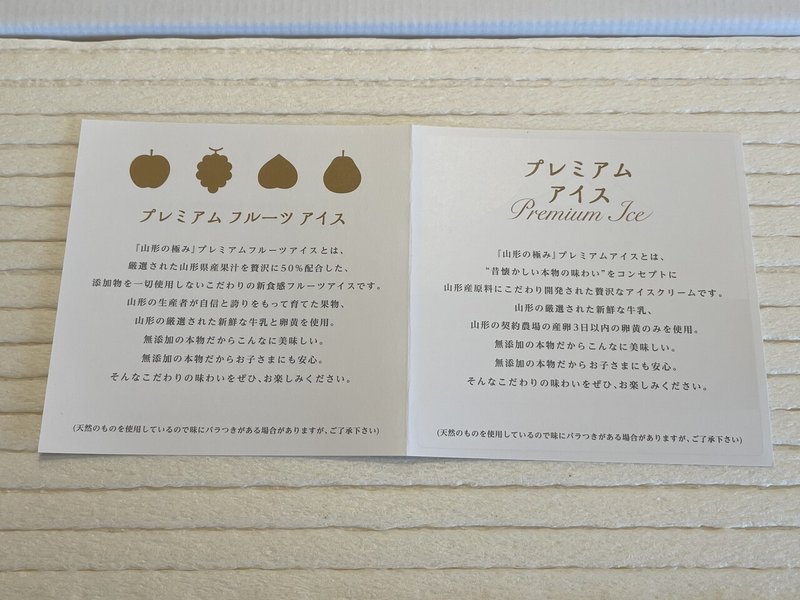 プレミアム フルーツ アイス
「山形の極み」プレミアムフルーツアイスとは、
厳選された山形県産果汁を贅沢に50%配合した、
添加物を一切使用しないこだわりの新食感フルーツアイスです。
山形の生産者が自信と誇りをもって育てた果物、
山形の厳選された新鮮な牛乳と卵黄を使用。
無添加の本物だからこんなに美味しい。
無添加の本物だからお子さまにも安心。
そんなこだわりの味わいをぜひ、お楽しみください。
(天然のものを使用しているので味にバラつきがある場合がありますが、ご了承下さい)
プレミアム
アイス
Premium Ice
「山形の極み」プレミアムアイスとは、
“昔懐かしい本物の味わい”をコンセプトに
山形産原料にこだわり開発された贅沢なアイスクリームです。
山形の厳選された新鮮な牛乳、
山形の契約農場の産卵3日以内の卵黄のみを使用。
無添加の本物だからこんなに美味しい。
無添加の本物だからお子さまにも安心。
そんなこだわりの味わいをぜひ、お楽しみください。
(天然のものを使用しているので味にバラつきがある場合がありますが、ご了承下さい)